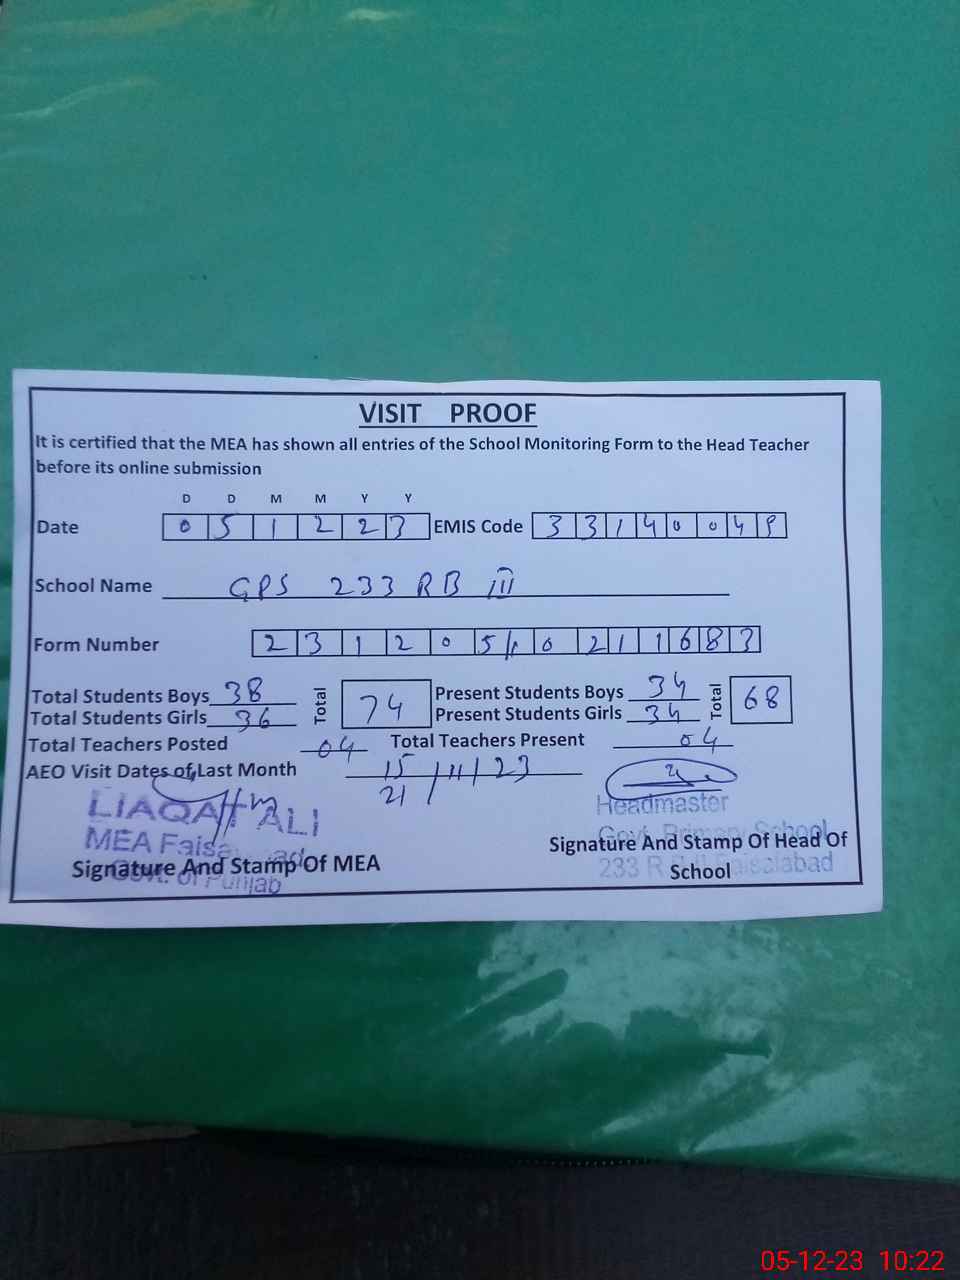 VISIT PROOF
It is certified that the MEA has shown all entries of the School Monitoring Form to the Head Teacher
before its online submission
D D M M Y Y
Date 0 5 1 2 2 3 EMIS Code 3 3 1 4 0 0 4 9
School Name GPS 233 RB III
Form Number 2 3 1 2 0 5 1 0 2 1 1 6 8 3
Total Students Boys 38 Total 74 Present Students Boys 34 Total 68
Total Students Girls 36 Present Students Girls 34
Total Teachers Posted 04 Total Teachers Present 04
AEO Visit Dates of Last Month 15/11/23
21
LIAQAT ALI
MEA Faisalabad
Govt. of Punjab
Signature And Stamp Of MEA
Headmaster
Govt. Primary School
233 R Faisalabad
Signature And Stamp Of Head Of
School
05-12-23 10:22